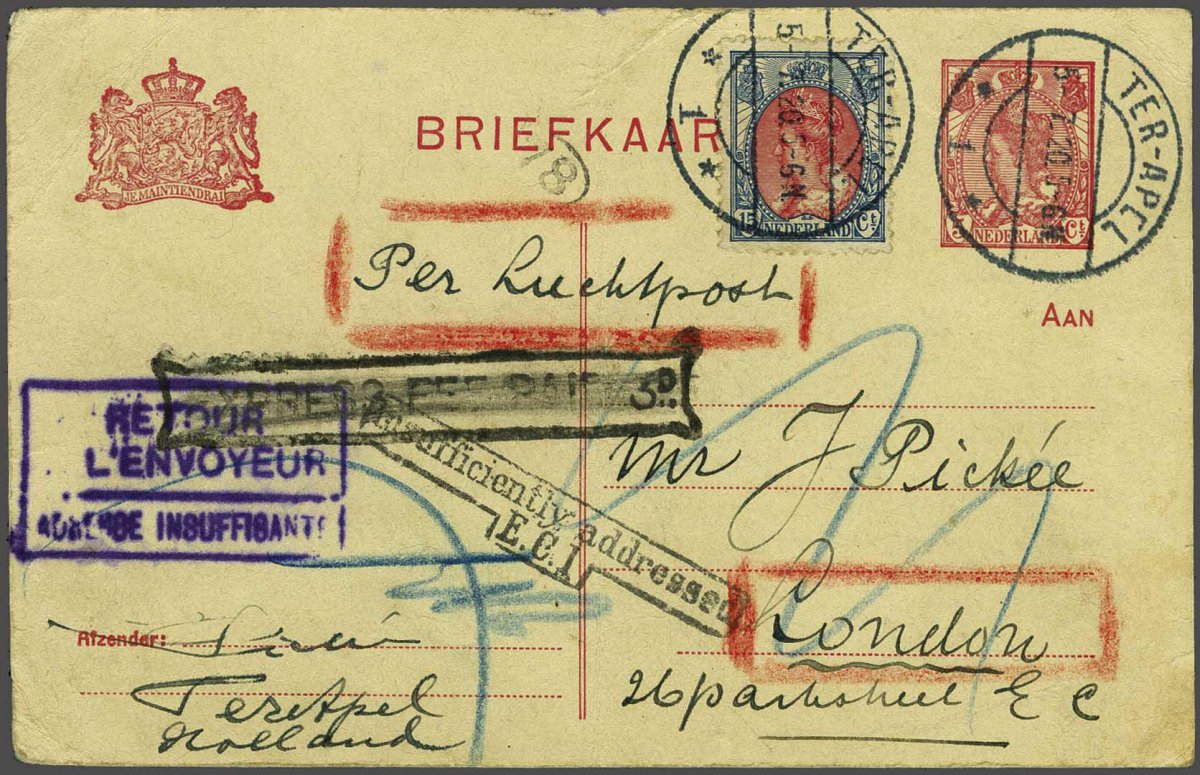 JE MAINTIENDRAI
BRIEFKAAR
78
TER-APEL
1
15 NEDERLAND Ct.
TER-APEL
1
5 7.20.5-6N
5 NEDERLAND Ct.
Per Luchtpost
AAN
EXPRESS FEE PAID 3D.
RETOUR
L'ENVOYEUR
ADRESSE INSUFFISANTE
Insufficiently addressed
E.C.1
Mr J Pickée
London
26 parkstreet E C
Afzender:
Ter Apel
Holland